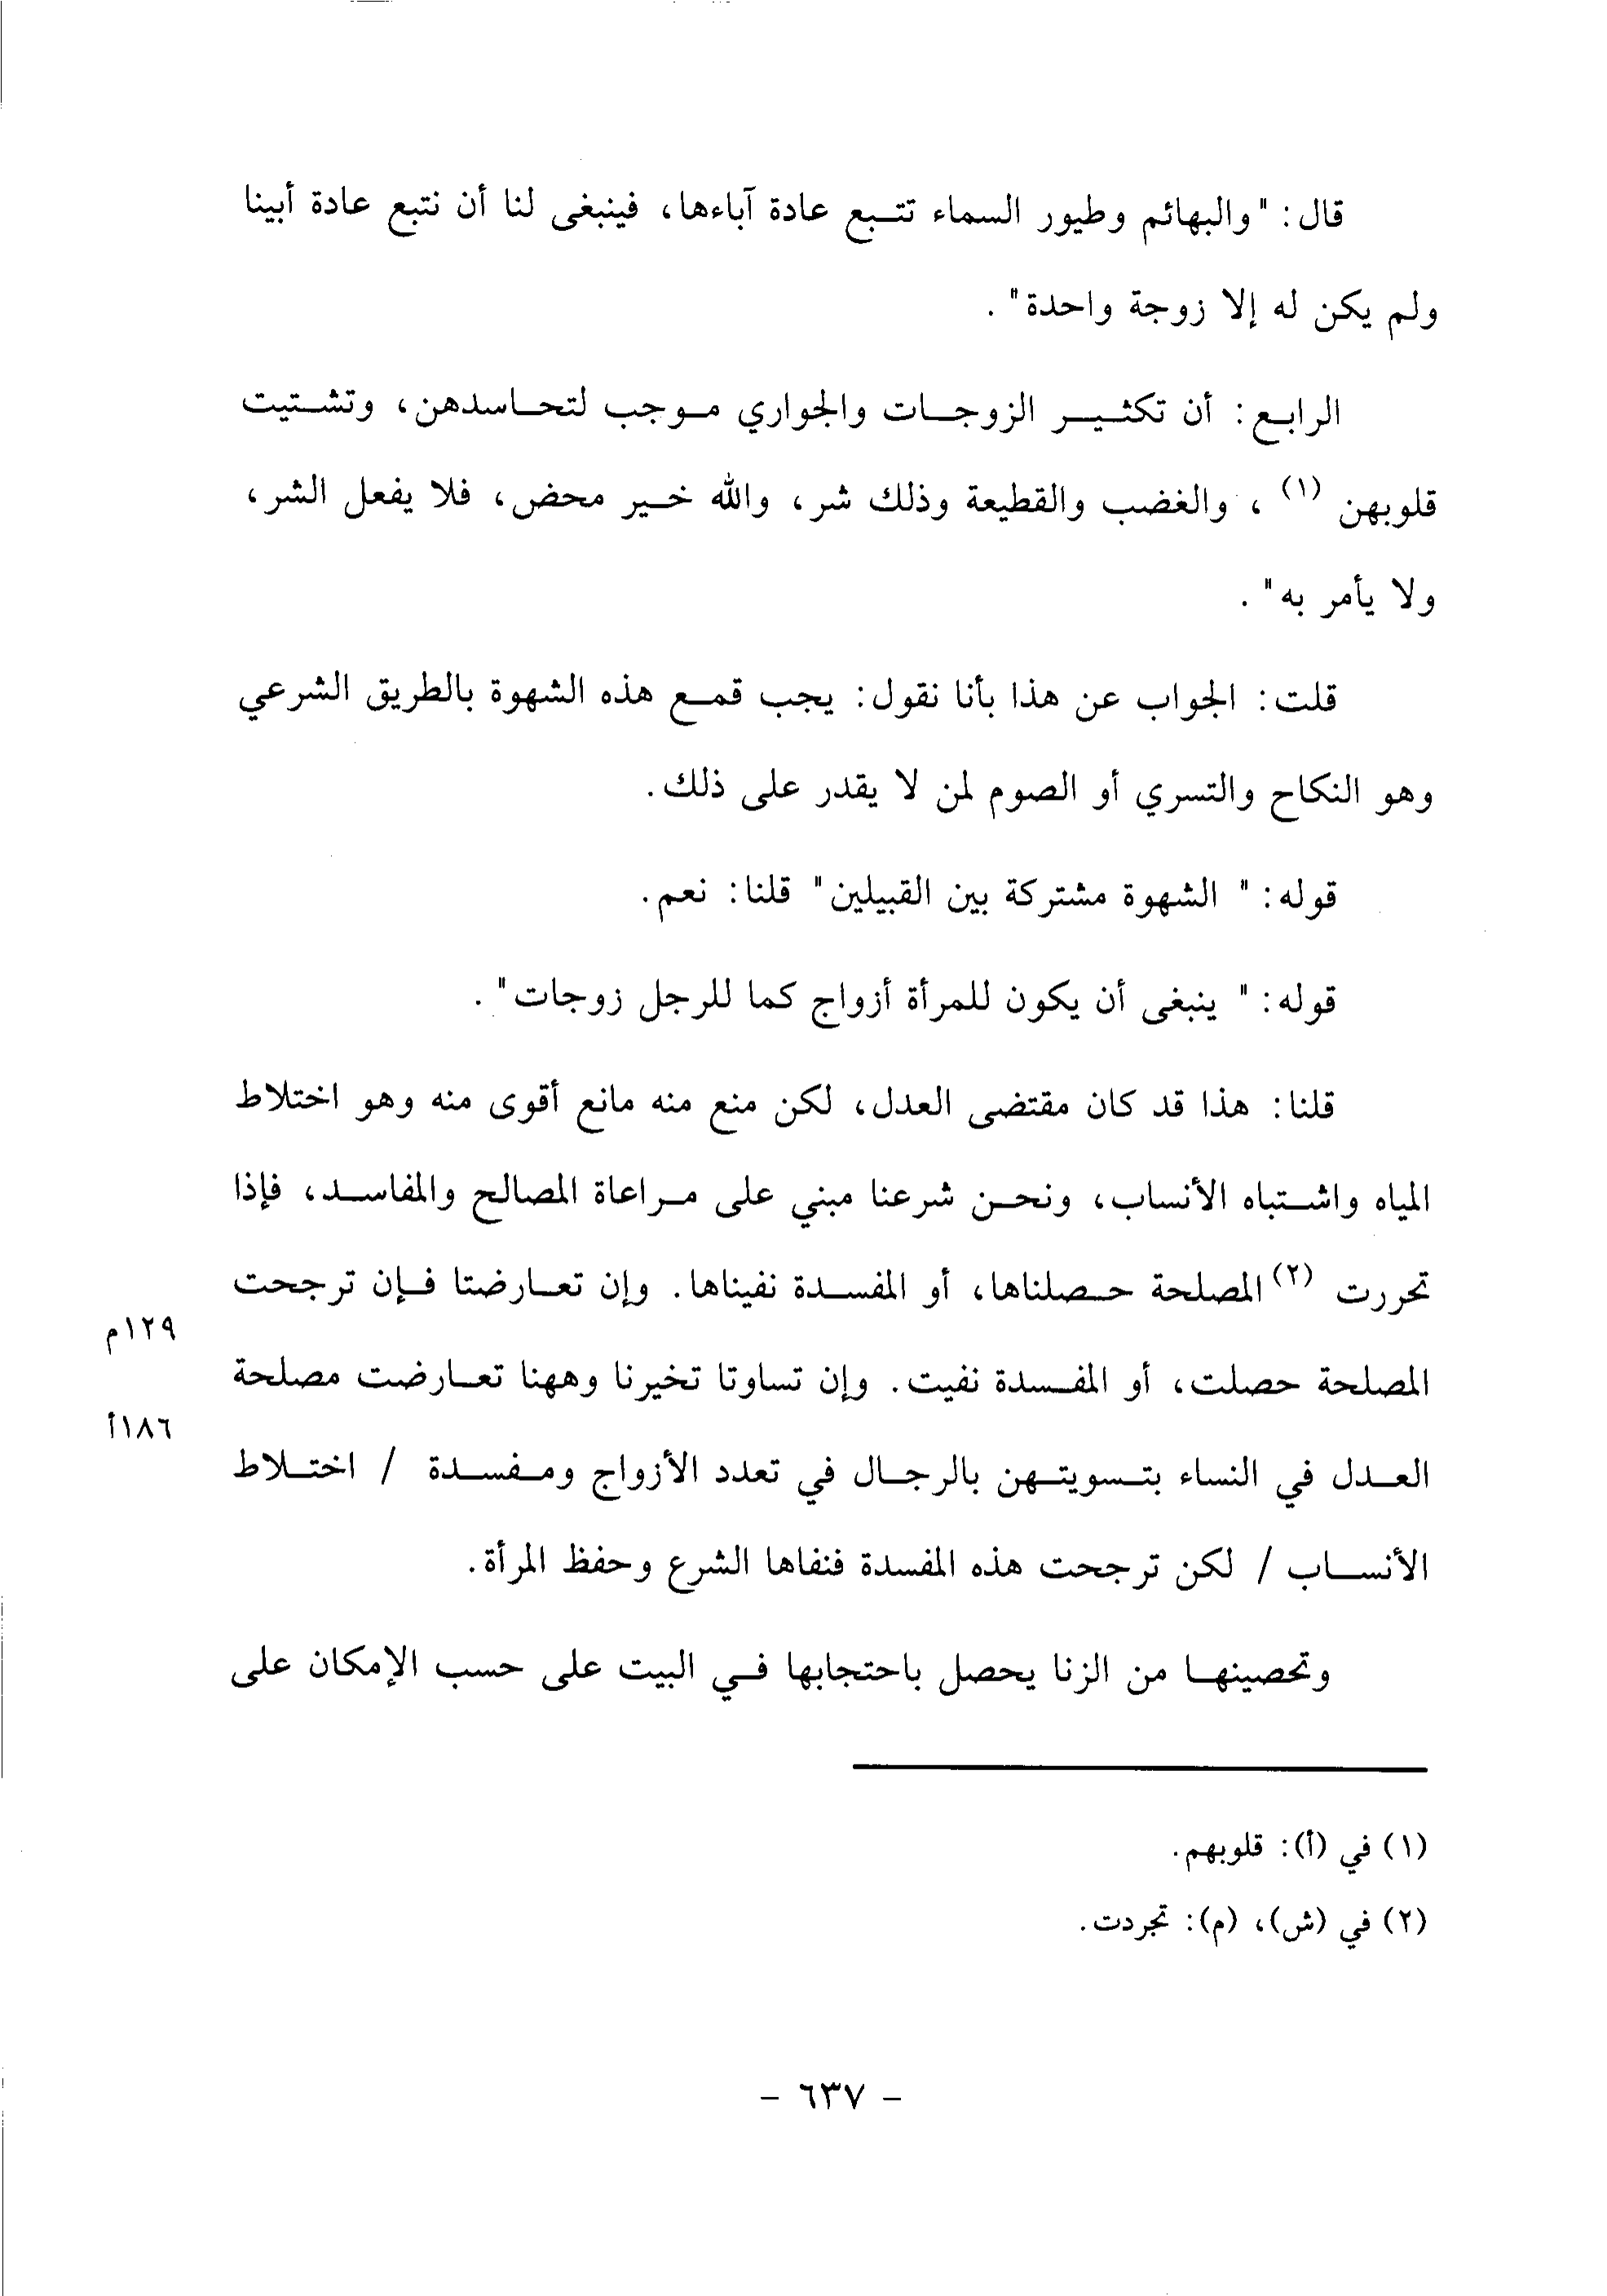 قال: "والبهائم وطيور السماء تتبع عادة آباءها، فينبغى لنا أن نتبع عادة أبينا
ولم يكن له إلا زوجة واحدة".
الرابع: أن تكثير الزوجات والجواري موجب لتحاسدهن، وتشتيت
قلوبهن (١)، والغضب والقطيعة وذلك شر، والله خير محض، فلا يفعل الشر،
ولا يأمر به".
قلت: الجواب عن هذا بأنا نقول: يجب قمع هذه الشهوة بالطريق الشرعي
وهو النكاح والتسري أو الصوم لمن لا يقدر على ذلك.
قوله: " الشهوة مشتركة بين القبيلين" قلنا: نعم.
قوله: " ينبغى أن يكون للمرأة أزواج كما للرجل زوجات".
قلنا: هذا قد كان مقتضى العدل، لكن منع منه مانع أقوى منه وهو اختلاط
المياه واشتباه الأنساب، ونحن شرعنا مبني على مراعاة المصالح والمفاسد، فإذا
تحررت (٢) المصلحة حصلناها، أو المفسدة نفيناها. وإن تعارضتا فإن ترجحت
١٢٩م
المصلحة حصلت، أو المفسدة نفيت. وإن تساوتا تخيرنا وههنا تعارضت مصلحة
١٨٦أ
العدل في النساء بتسويتهن بالرجال في تعدد الأزواج ومفسدة / اختلاط
الأنساب / لكن ترجحت هذه المفسدة فنفاها الشرع وحفظ المرأة.
وتحصينها من الزنا يحصل باحتجابها في البيت على حسب الإمكان على
(١) في (أ): قلوبهم.
(٢) في (ش)، (م): تجردت.
- ٦٣٧ -